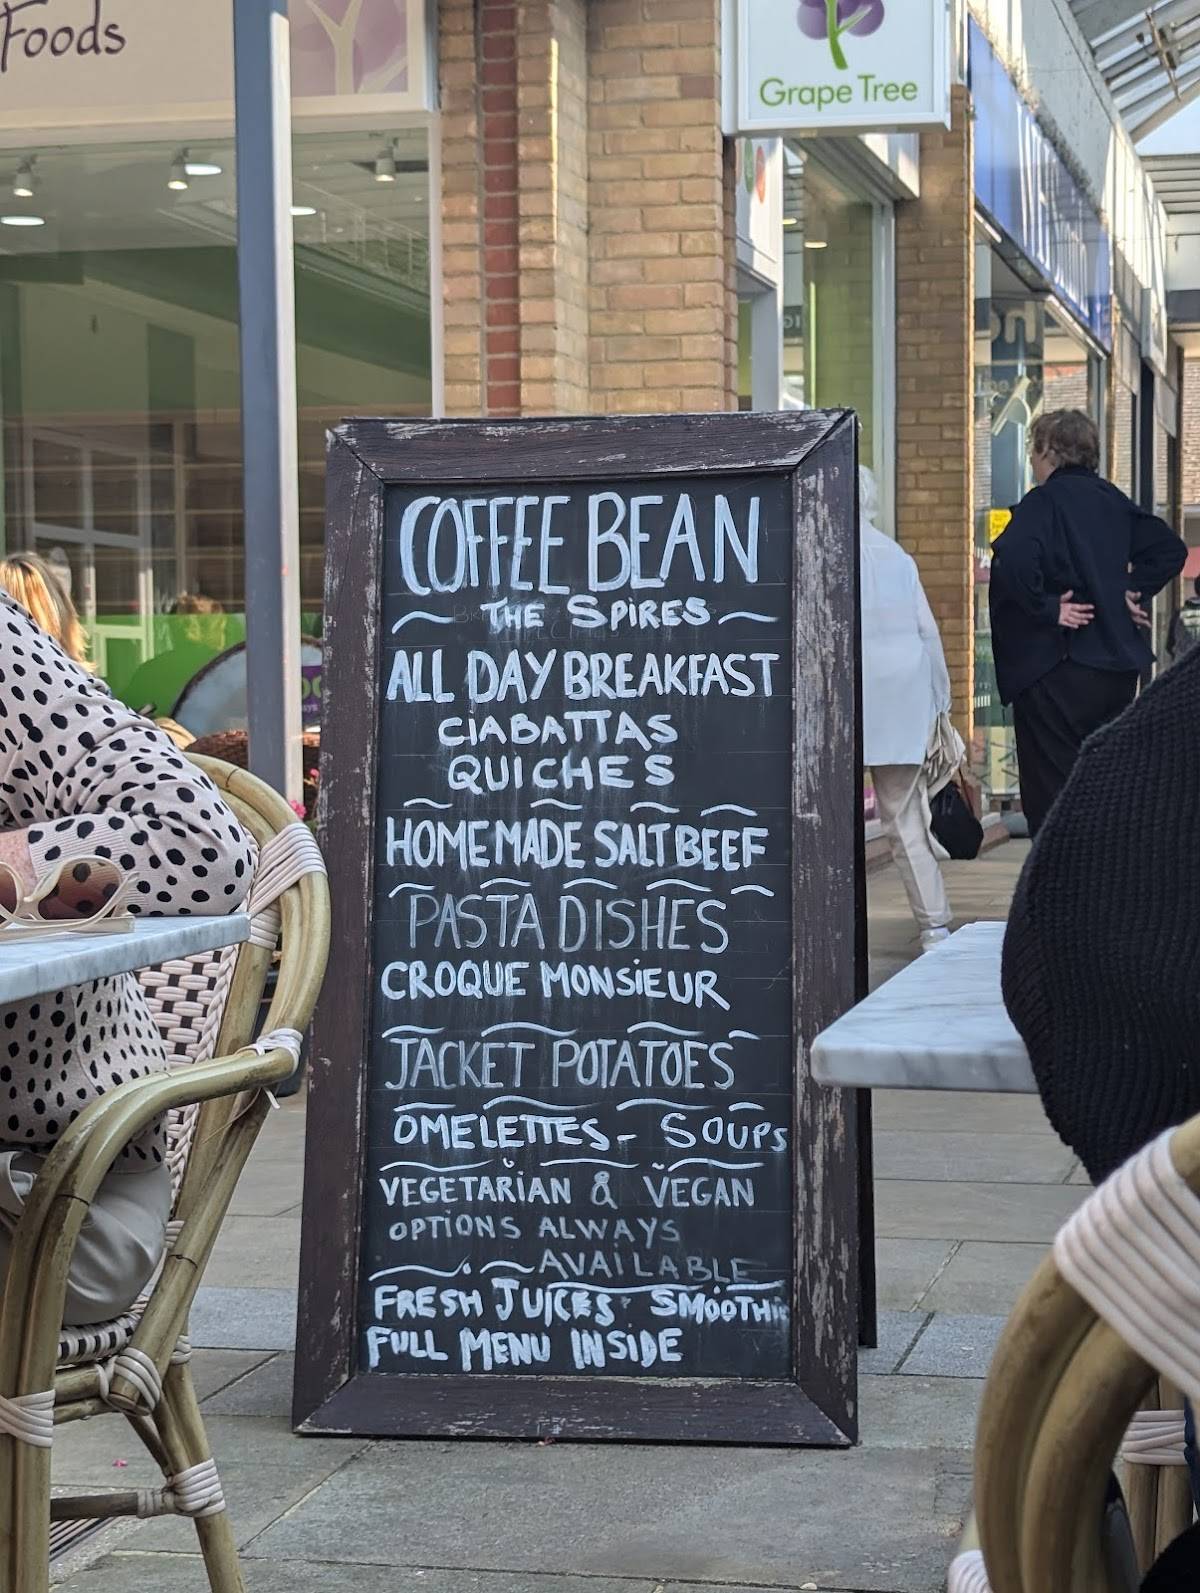 Foods
Grape Tree
COFFEE BEAN
THE SPIRES
ALL DAY BREAKFAST
CIABATTAS
QUICHES
HOMEMADE SALT BEEF
PASTA DISHES
CROQUE MONSIEUR
JACKET POTATOES
OMELETTES - SOUPS
VEGETARIAN & VEGAN
OPTIONS ALWAYS
AVAILABLE
FRESH JUICES SMOOTHI
FULL MENU INSIDE